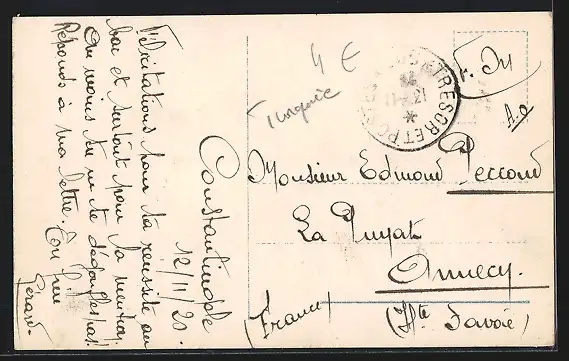 Constantinople
12/11/20.
Félicitations pour ta réussite au
bac et surtout pour la mention.
Au moins tu ne te dégonfles pas.
Réponds à ma lettre. Ton
Gérard
4 €
Turquie
TRESOR ET POSTES
F. M
A.O
Monsieur Edmond Peccoud
La Puyat
Annecy.
(Hte Savoie)
(France)